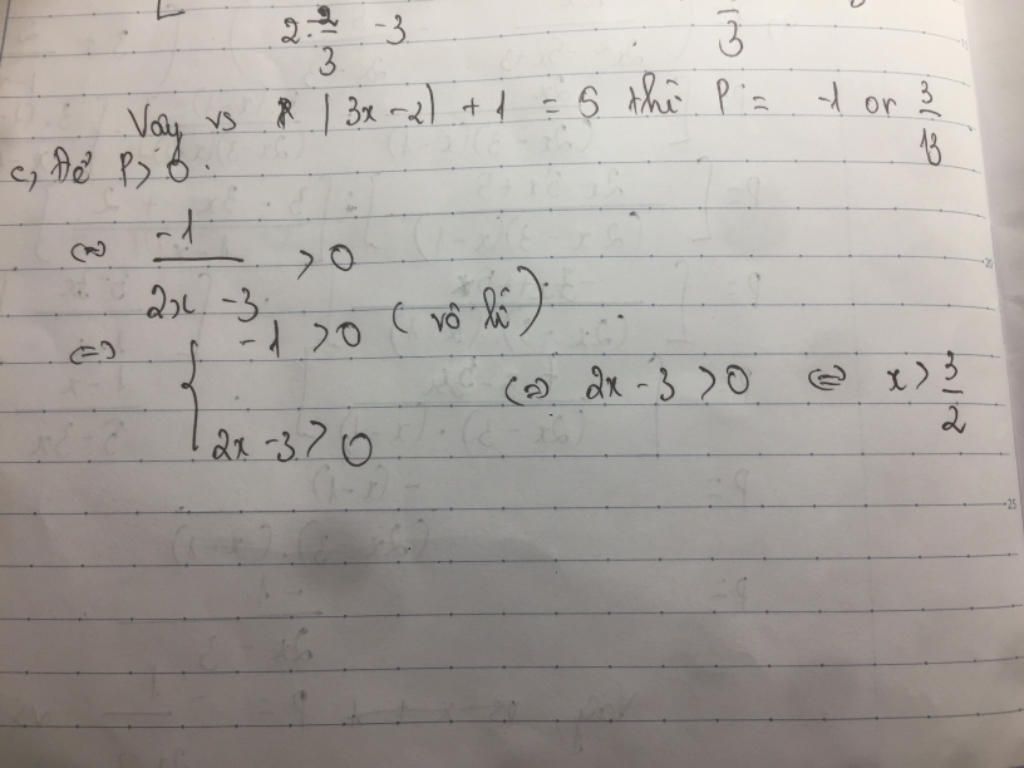 2.-2/3 -3
3
Vậy vs |3x-2| + 1 = 5 thì P = -1 or 3/13
c, Để P > 0.
⇔ -1/(2x - 3) > 0
⇔ { -1 > 0 (vô lí)
2x - 3 > 0 ⇔ 2x - 3 > 0 ⇔ x > 3/2